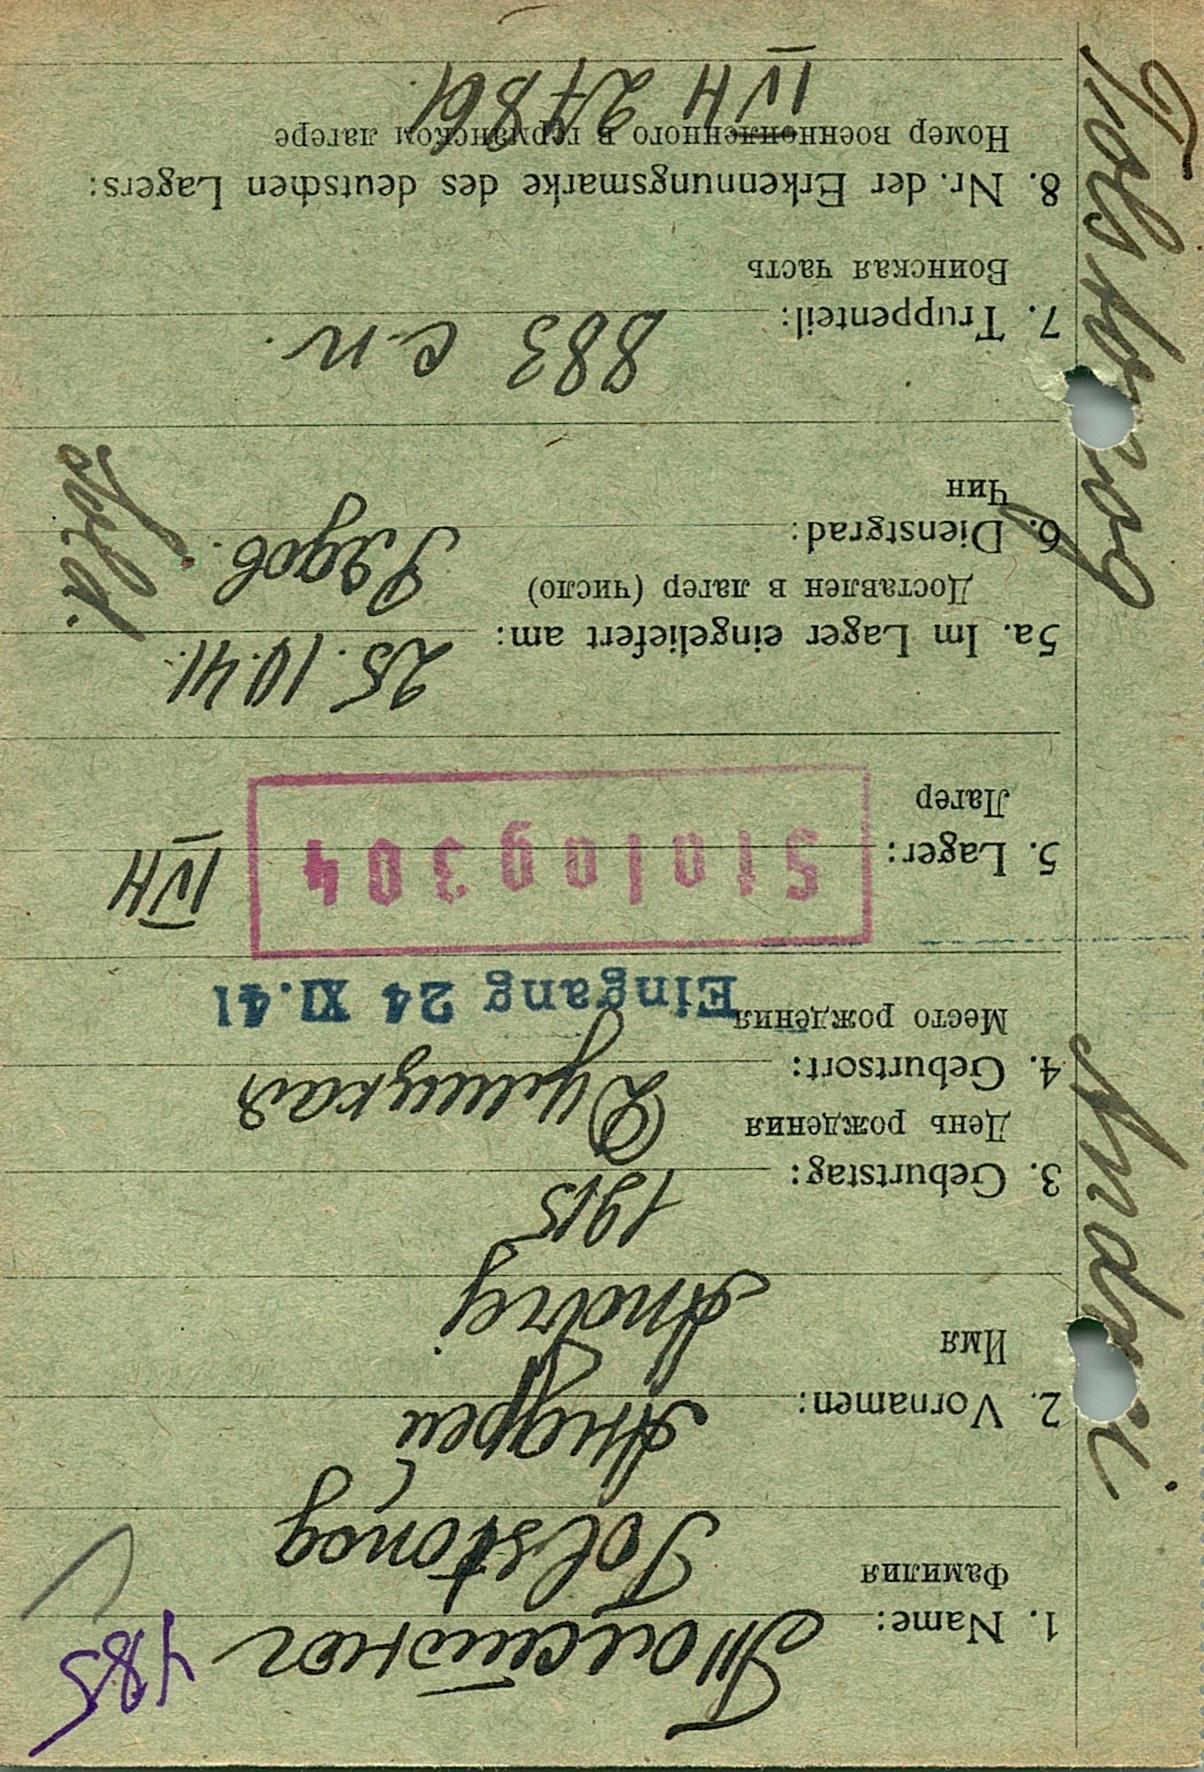 485
1. Name: Толстоног
Фамилия
Tolstonog
2. Vornamen: Андрей
Имя
Andrej
3. Geburtstag: 1915
День рождения
4. Geburtsort:
Место рождения
Eingang 24 XI. 41
5. Lager: Stalag 304 IV H
Лагер
5a. Im Lager eingeliefert am: 25. 10. 41.
Доставлен в лагер (число)
6. Dienstgrad: Рядов. Sold.
Чин
7. Truppenteil: 883 с.п.
Воинская часть
8. Nr. der Erkennungsmarke des deutschen Lagers:
Номер военнопленного в германском лагере
IV H 27861.
Tolstonog Andrei